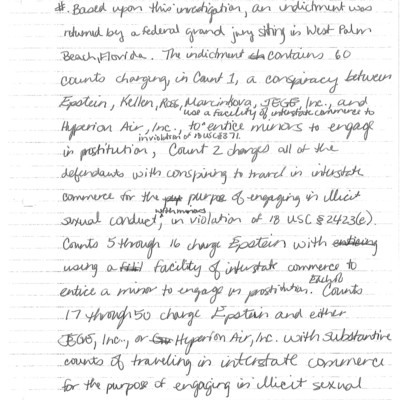 #. Based upon this investigation, an indictment was
returned by a federal grand jury sitting in West Palm
Beach, Florida. The indictment contains 60
counts charging, in Count 1, a conspiracy between
Epstein, Kellen, Ross, Marcinkova, JEGE, Inc., and
use a facility of interstate commerce to
Hyperion Air, Inc., to entice minors to engage
in violation of 18 USC § 371.
in prostitution, Count 2 charges all of the
defendants with conspiring to travel in interstate
commerce for the purpose of engaging in illicit
with minors
sexual conduct, in violation of 18 USC § 2423(e).
Counts 5 through 16 charge Epstein with
using a facility of interstate commerce to
entice a minor to engage in prostitution. Counts
17 through 50 charge Epstein and either
JEGE, Inc., or Hyperion Air, Inc. with substantive
counts of traveling in interstate commerce
for the purpose of engaging in illicit sexual